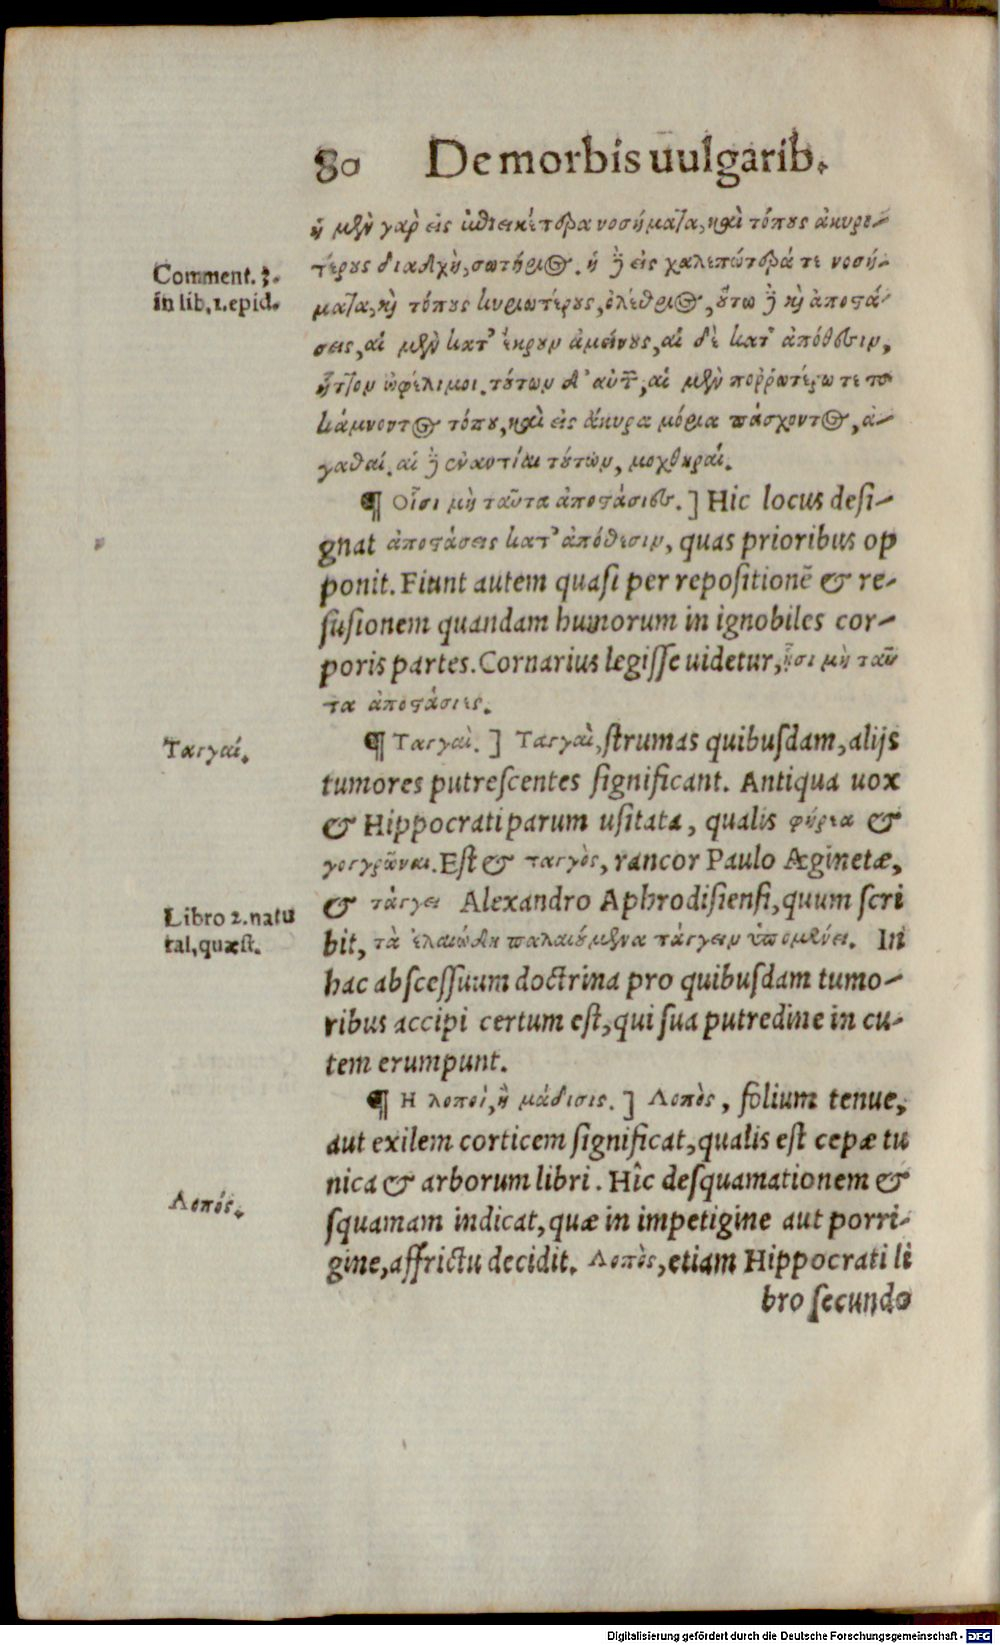 80 De morbis uulgarib.
ἡ μὲν γαρ εἰς ἐπιεικέστερα νοσήματα, καὶ τόπους ἀκυρο-
Comment. 3.
in lib. 1. epid.
τέρους διαδοχὴ, σωτήριος. ἡ δὲ εἰς χαλεπώτερά τε νοσή-
ματα, καὶ τόπους κυριωτέρους, ὀλέθριος, οὕτω δὲ καὶ ἀποστά-
σεις, αἱ μὲν κατ' ἔκρουν ἀμείνους, αἱ δὲ κατ' ἀπόθεσιν,
ἧττον ὠφέλιμοι. τούτων δ' αὖ, αἱ μὲν πορρωτέρω τε τοῦ
κάμνοντος τόπου, καὶ εἰς ἄκυρα μόρια πάσχοντος, ἀ-
γαθαί. αἱ δὲ ἐναντίαι τούτων, μοχθηραί.
¶ Οἷσι μὴ ταῦτα ἀποστάσιες.] Hic locus desi-
gnat ἀποστάσεις κατ' ἀπόθεσιν, quas prioribus op
ponit. Fiunt autem quasi per repositionē & re-
fusionem quandam humorum in ignobiles cor-
poris partes. Cornarius legisse uidetur, ᾗσι μὴ ταῦ
τα ἀποστάσιες.
Ταγγαί.
¶ Ταγγαὶ.] Ταγγαὶ, strumas quibusdam, alijs
tumores putrescentes significant. Antiqua uox
& Hippocrati parum usitata, qualis φήρεα &
γογγρῶναι. Est & ταγγὸς, rancor Paulo Æginetæ,
Libro 2. natu
ral. quæst.
& τάγγει Alexandro Aphrodisiensi, quum scri
bit, τὰ ἐλαιώδη παλαιούμενα τάγγειν ὑπομένει. In
hac abscessuum doctrina pro quibusdam tumo-
ribus accipi certum est, qui sua putredine in cu-
tem erumpunt.
¶ Η λοποί, ἢ μάδισις.] Λοπὸς, folium tenue,
aut exilem corticem significat, qualis est cepæ tu
nica & arborum libri. Hîc desquamationem &
Λοπός.
squamam indicat, quæ in impetigine aut porri-
gine, affrictu decidit. Λοπὸς, etiam Hippocrati li
bro secundo
Digitalisierung gefördert durch die Deutsche Forschungsgemeinschaft - DFG